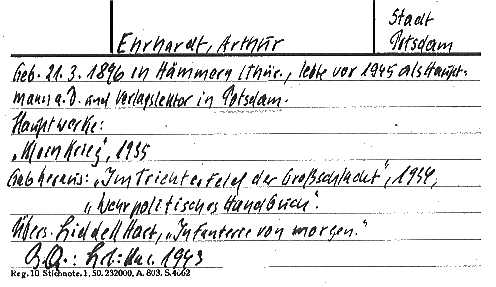 Stadt
Ehrhardt, Arthur Potsdam
Geb. 21.3.1896 in Hämmern (Thür., lebte vor 1945 als Haupt-
mann a.D. und Verlagslektor in Potsdam.
Hauptwerke:
„Kleinkrieg", 1935
Gab heraus: „Im Trichterfeld der Großschlacht", 1934,
„Wehrpolitisches Handbuch".
Übers. Liddell Hart, „Infanterie von morgen."
1943
Reg. 10 Stichnote. 1. 50. 232000. A. 803. S. 4662